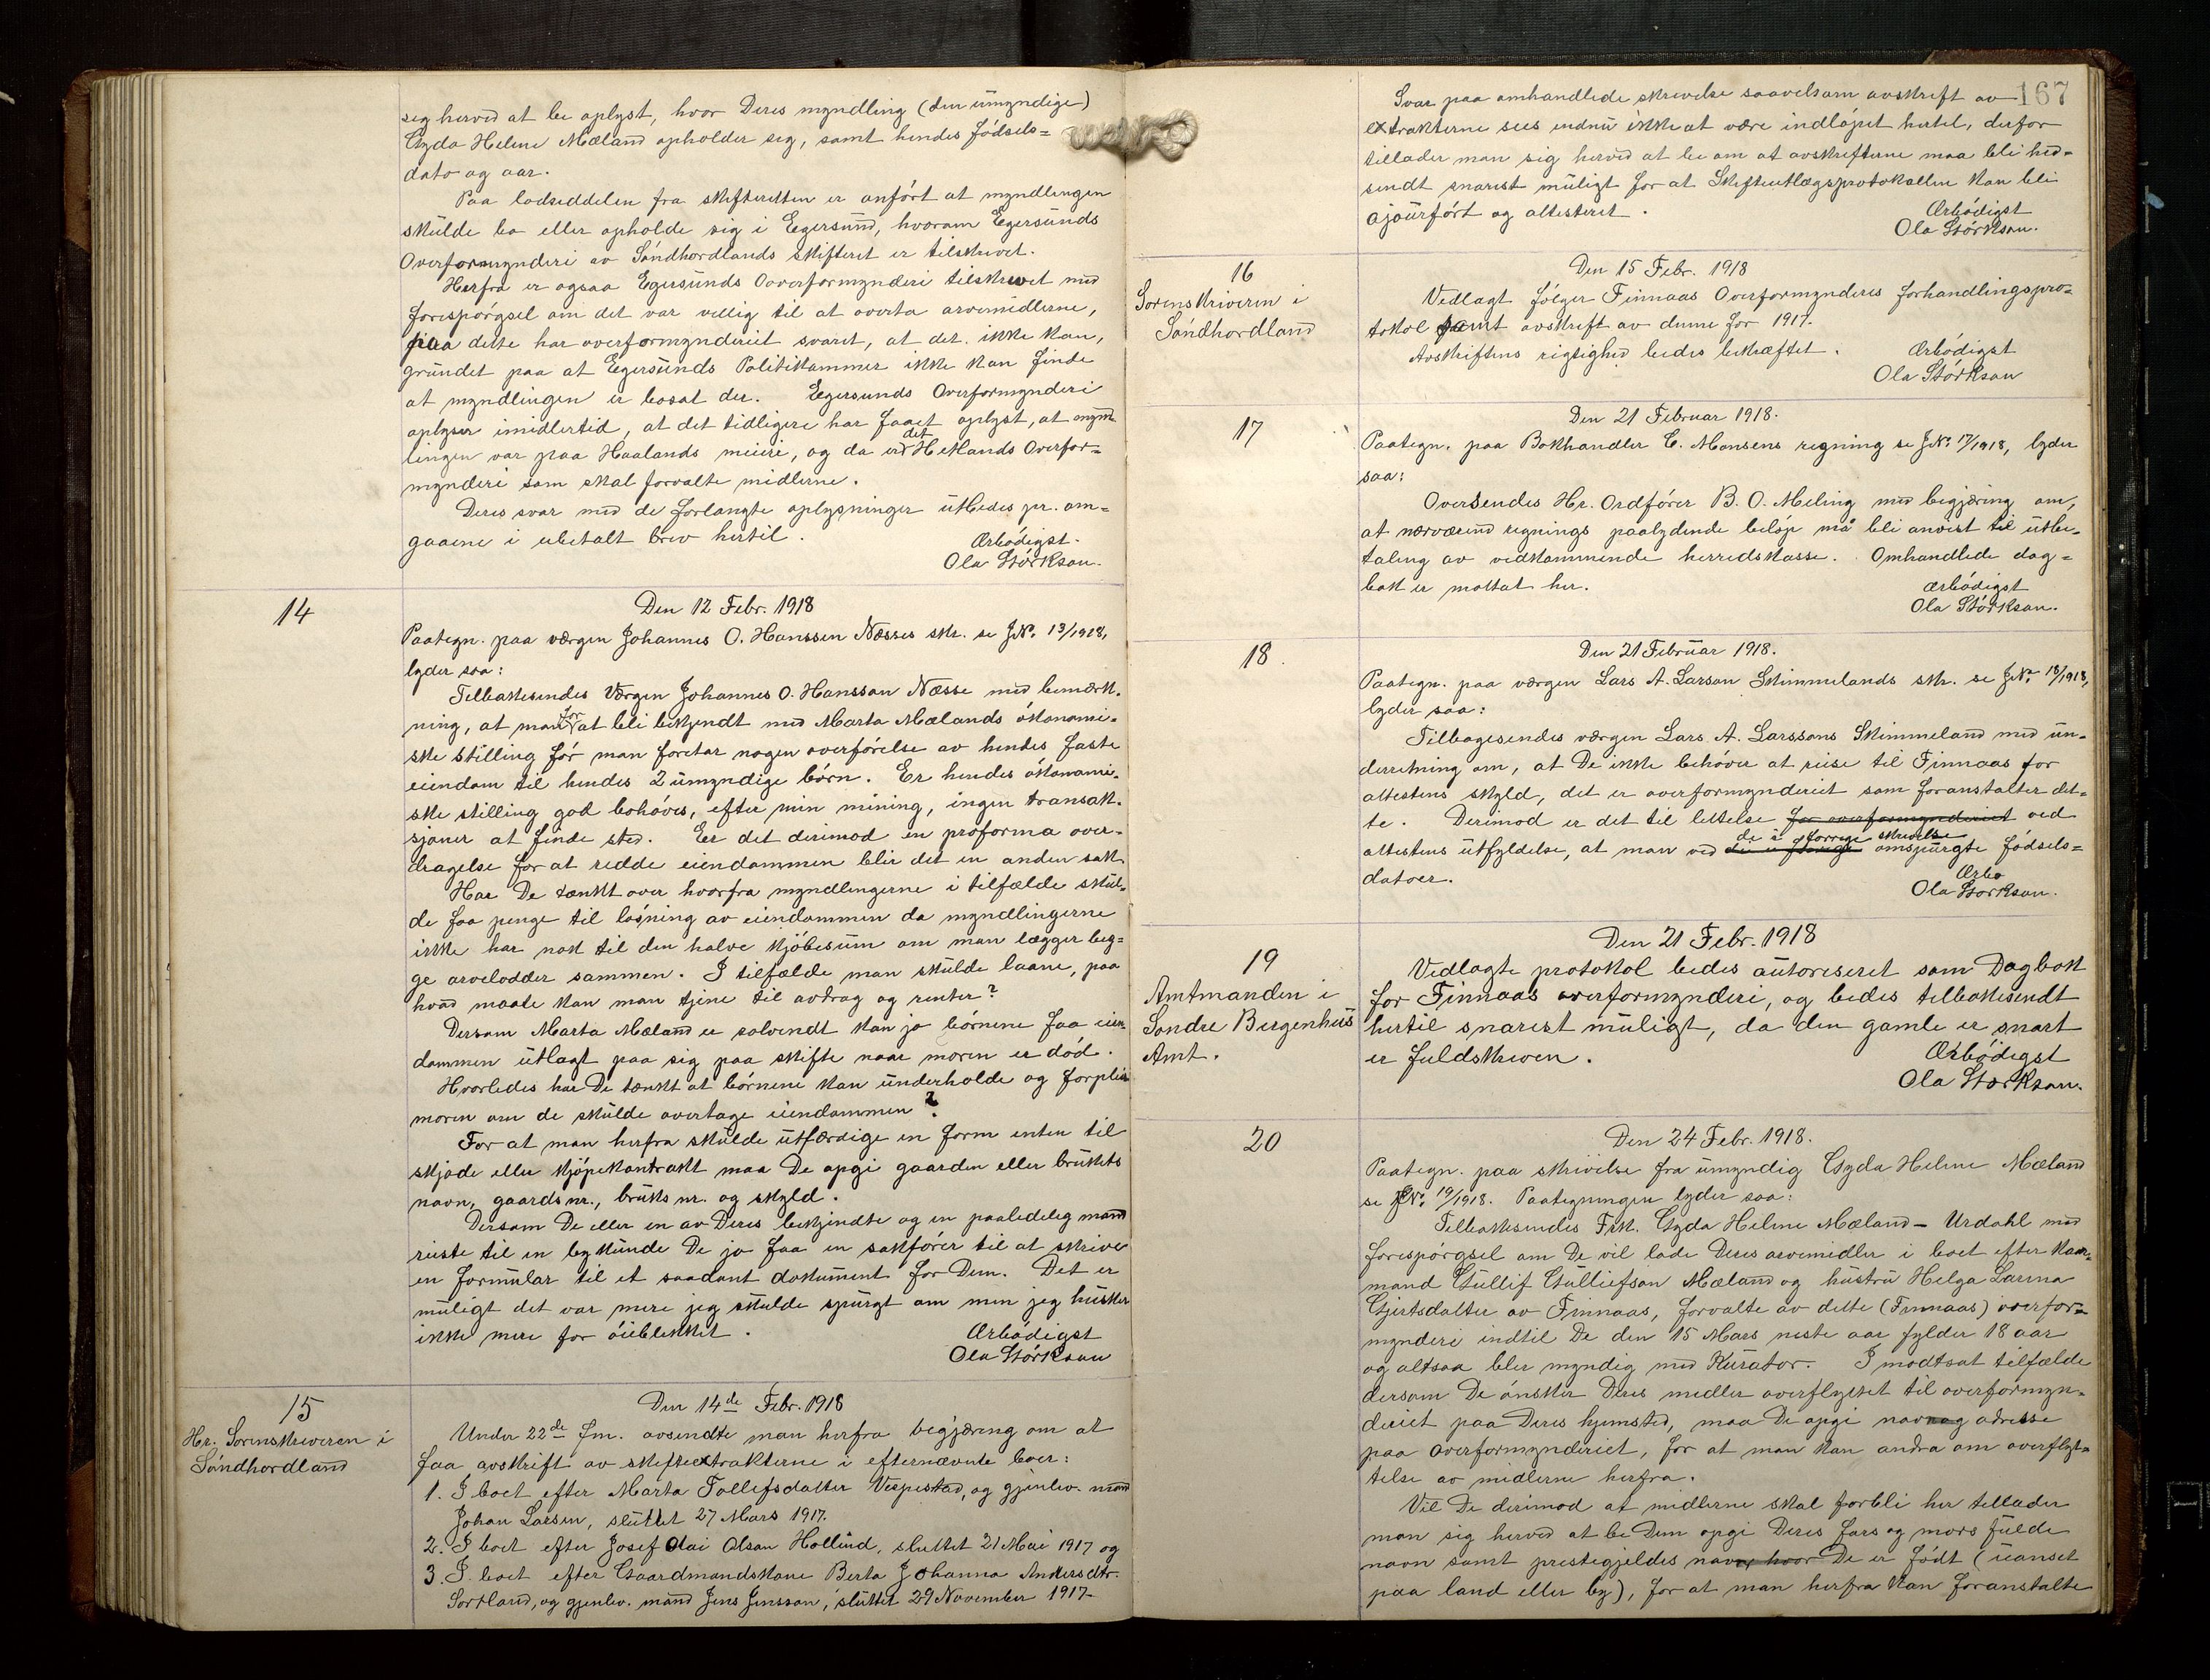 seg herved at be oplyst, hvor Deres myndling (den umyndige)
Gyda Helene Mæland opholder sig, samt hendes fødsels=
dato og aar.
Paa lodseddelen fra skifteretten er anført at myndlingen
skulde bo eller opholde sig i Egersund, hvorom Egersunds
Overformynderi av Søndhordlands skifteret er tilskrevet.
Herfra er ogsaa Egersunds Overformynderi tilskrevet med
forespørgsel om det var villig til at overta arvemidlerne,
paa dette har overformynderiet svaret, at det ikke kan,
grundet paa at Egersunds Politikammer ikke kan finde
at myndlingen er bosat der. Egersunds Overformynderi
oplyser imidlertid, at det tidligere har faaet oplyst, at mynd-
lingen var paa Haalands meieri, og da er det Hetlands Overfor=
mynderi som skal forvalte midlerne.
Deres svar med de forlangte oplysninger utbedes pr. om=
gaaene i ubetalt brev hertil.
Ærbødigst.
Ola Størkson.
14
Den 12 Febr. 1918
Paategn. paa værgen Johannes O. Hanssen Næsses skr. se J.No. 13/1918,
lyder saa:
Tilbakesendes Værgen Johannes O. Hansson Næsse med bemærk-
ning, at man før at bli bekjendt med Marta Mælands økonomi-
ske stilling før man foretar nogen overførelse av hendes faste
eiendom til hendes 2 umyndige børn. Er hendes økonomi-
ske stilling god behøves, efter min mening, ingen transak-
sjoner at finde sted. Er det derimod en proforma over-
dragelse for at redde eiendommen blir det en anden sak.
Har De tænkt over hvorfra myndlingerne i tilfælde skul-
de faa penge til løsning av eiendommen da myndlingerne
ikke har nok til den halve kjøbesum om man lægger beg=
ge arvelodder sammen. I tilfælde man skulde laane, paa
hvad maate kan man tjene til avdrag og renter?
Dersom Marta Mæland er solvendt kan jo børnene faa eien-
dommen utlagt paa sig paa skifte naar moren er død.
Hvorledes har De tænkt at børnene kan underholde og forpleie
moren om de skulde overtage eiendommen?
For at man herfra skulde utfærdige en form enten til
skjøde eller kjøpekontrakt maa De opgi gaarden eller brukets
navn, gaards nr., bruks nr. og skyld.
Dersom De eller en av Deres bekjendte og en paalidelig mand
reiste til en by kunde De jo faa en sakfører til at skrive
en formular til et saadant dokument for Dem. Det er
muligt det var mere jeg skulde spurgt om men jeg husker
ikke mere for øieblikket.
Ærbødigst
Ola Størkson
15
Hr. Sorenskriveren i
Søndhordland
Den 14de Febr. 1918
Under 22de f.m. avsendte man herfra begjæring om at
faa avskrift av skifteextrakterne i efternævnte boer:
1. I boet efter Marta Tollefsdatter Vespestad, og gjenlev. mand
Johan Larsen, sluttet 27 Mars 1917.
2. I boet efter Josef Olai Olson Hollund, sluttet 21 Mai 1917 og
3. I boet efter Gaardmandskone Berta Johanna Andersdtr.
Sortland, og gjenlev. mand Jens Jensson, sluttet 29 November 1917.
167
Svar paa omhandlede skrivelse saavelsom avskrift av
extrakterne sees endnu ikke at være indløpet hertil, derfor
tillader man sig herved at be om at avskrifterne maa bli hid=
sendt snarest muligt for at Skifteutlægsprotokollen kan bli
ajourført og attesteret.
Ærbødigst
Ola Størkson.
16
Sorenskriveren i
Søndhordland
Den 15 Febr. 1918
Vedlagt følger Finnaas Overformynderis forhandlingspro=
tokol samt avskrift av denne for 1917.
Avskriftens rigtighed bedes bekræftet.
Ærbødigst
Ola Størkson
17
Den 21 Februar 1918.
Paategn. paa Bokhandler C. Monsens regning se J.No. 17/1918, lyder
saa:
Oversendes Hr. Ordfører B. O. Meling med begjæring om,
at nærværend regnings paalydende beløp må bli anvist til utbe-
taling av vedkommende herredskasse. Omhandlede dag=
bok er mottat her.
ærbødigst
Ola Størkson.
18
Den 21 Februar 1918.
Paategn. paa værgen Lars A. Larson Skimmelands skr. se J.No. 18/1918,
lyder saa:
Tilbagesendes værgen Lars A. Larssons Skimmeland med un-
derretning om, at De ikke behøver at reise til Finnaas for
attestens skyld, det er overformynderiet som foranstalter det-
te. Derimod er det til lettelse for overformynderiet ved
attestens utfyldelse, at man ved de i forrige skrivelse omspurgte fødsels=
datoer.
Ærbø
Ola Størkson.
19
Amtmanden i
Søndre Bergenhus
Amt.
Den 21 Febr. 1918
Vedlagte protokol bedes autoriseret som Dagbok
for Finnaas overformynderi, og bedes tilbakesendt
hertil snarest muligt, da den gamle er snart
er fuldskreven.
Ærbødigst
Ola Størkson.
20
Den 24 Febr. 1918.
Paategn. paa skrivelse fra umyndig Gyda Helene Mæland
se J.No. 19/1918. Paategningen lyder saa:
Tilbakesendes Frk. Gyda Helene Mæland - Urdahl med
forespørgsel om De vil lade Deres arvemidler i boet efter kaar-
mand Gullif Gulliefson Mæland og hustru Helga Larina
Gjertsdatter av Finnaas, forvalte av dette (Finnaas) overfor=
mynderi indtil De den 15 Mars neste aar fylder 18 aar
og altsaa blir myndig med Kurator. I modsat tilfælde
dersom De ønsker Deres midler overflyttet til overformyn-
deriet paa Deres hjemsted, maa De opgi navn og adresse
paa overformynderiet, for at man kan andra om overflyt=
telse av midlerne herfra.
Vil De derimod at midlerne skal forbli her tillader
man sig herved at be Dem opgi Deres fars og mors fulde
navn samt prestegjeldes navn hvor De er født (uanset
paa land eller by), for at man herfra kan foranstalte